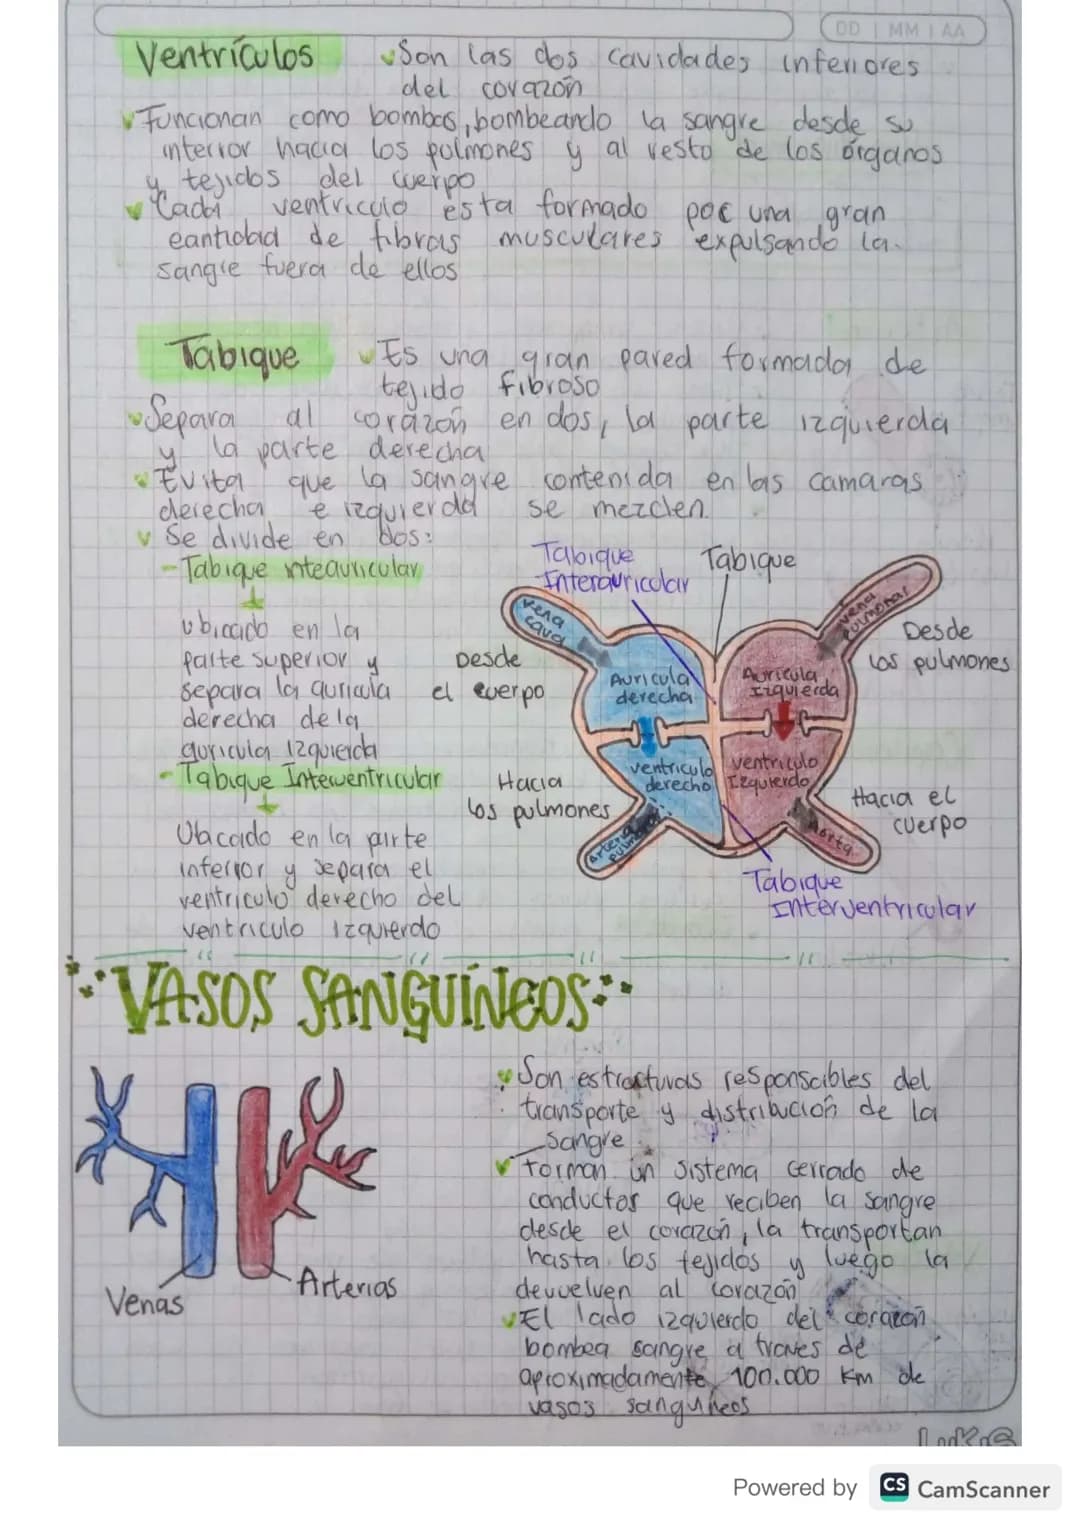 DD | MM | AA
Ventrículos
Son las dos cavidades inferiores
del corazón
Funcionan como bombas, bombeando la sangre desde su
interior hacia los pulmones y al resto de los órganos
y tejidos del cuerpo
Cada ventriculo esta formado por una gran
cantidad de fibras musculares expulsando la
sangre fuera de ellos
Tabique
Es una gran pared formada de
tejido fibroso
Separa al corazón en dos, la parte izquierda
y la parte derecha
Evita que la sangre contenida en las camaras
derecha e izquierda se mezclen.
Se divide en dos:
-Tabique inteauricular
ubicado en la
parte superior y
separa la auricula
derecha de la
auricula izquierda
-Tabique Inteventricular
Ubicado en la parte
inferior y separa el
ventriculo derecho del
ventriculo izquierdo
Tabique
Interauricular
Tabique
vena
cava
vena
pulmonar
Desde
los pulmones
Desde
el cuerpo
Auricula
derecha
Auricula
Izquierda
ventriculo
derecho
ventriculo
Izquierdo
Hacia
los pulmones
Arteria
pulmonar
Aorta
Hacia el
cuerpo
Tabique
Interventricular
VASOS SANGUÍNEOS
Venas
Arterias
Son estructuras responsables del
transporte y distribución de la
sangre
forman un sistema cerrado de
conductos que reciben la sangre
desde el corazón, la transportan
hasta los tejidos y luego la
devuelven al corazón
El lado izquierdo del corazón
bombea sangre a traves de
aproximadamente 100.000 Km de
vasos sanguíneos
Powered by CS CamScanner